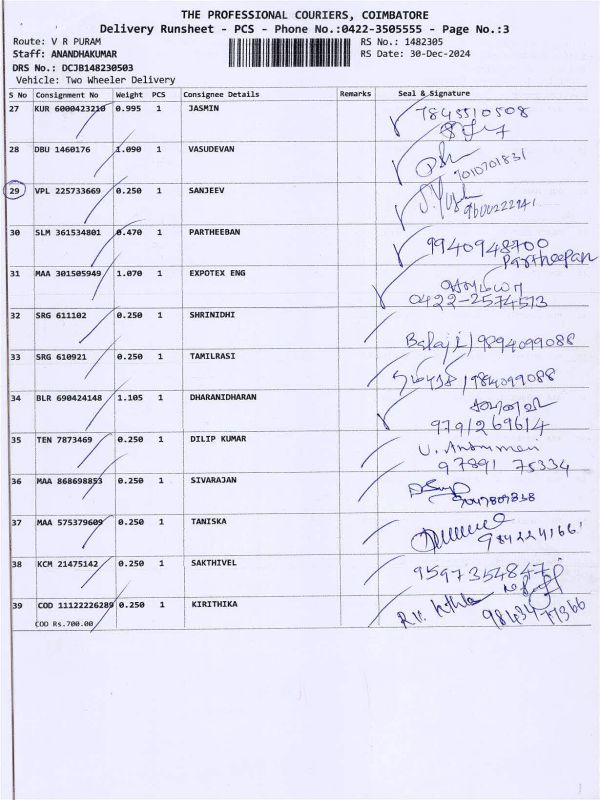 THE PROFESSIONAL COURIERS, COIMBATORE
Delivery Runsheet - PCS - Phone No.:0422-3505555 - Page No.:3
Route: V R PURAM RS No.: 1482305
Staff: ANANDHAKUMAR RS Date: 30-Dec-2024
DRS No.: DCJB148230503
Vehicle: Two Wheeler Delivery
S No Consignment No Weight PCS Consignee Details Remarks Seal & Signature
27 KUR 6000423210 0.995 1 JASMIN 7845510508
28 DBU 1460176 1.090 1 VASUDEVAN 7010701831
29 VPL 225733669 0.250 1 SANJEEV
30 SLM 361534801 0.470 1 PARTHEEBAN 9940948700
Partheepan
31 MAA 301505949 1.070 1 EXPOTEX ENG
0422-2574513
32 SRG 611102 0.250 1 SHRINIDHI
Balaji / 9894099088
33 SRG 610921 0.250 1 TAMILRASI
34 BLR 690424148 1.105 1 DHARANIDHARAN
9791269614
35 TEN 7873469 0.250 1 DILIP KUMAR
97891 75334
36 MAA 868698853 0.250 1 SIVARAJAN
37 MAA 575379609 0.250 1 TANISKA
38 KCM 21475142 0.250 1 SAKTHIVEL
39 COD 11122226289 0.250 1 KIRITHIKA
COD Rs.700.00